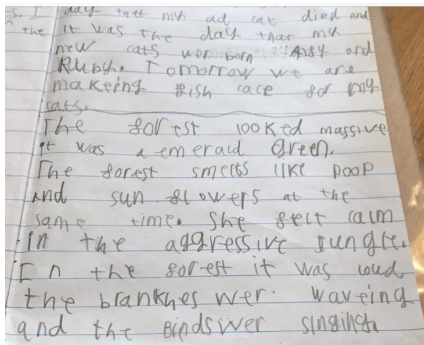 day that my ad cat died and
the it was the day that my
new cats wer born and
Ruby. Tomorrow we are
makeing fish cace for my
cats.
The forest looked massive
it was a emerald Green.
The forest smells like poop
and sun flowers at the
same time. She felt calm
in the aggressive jungle.
In the forest it was loud
the brankhes wer waveing
and the birds wer singing